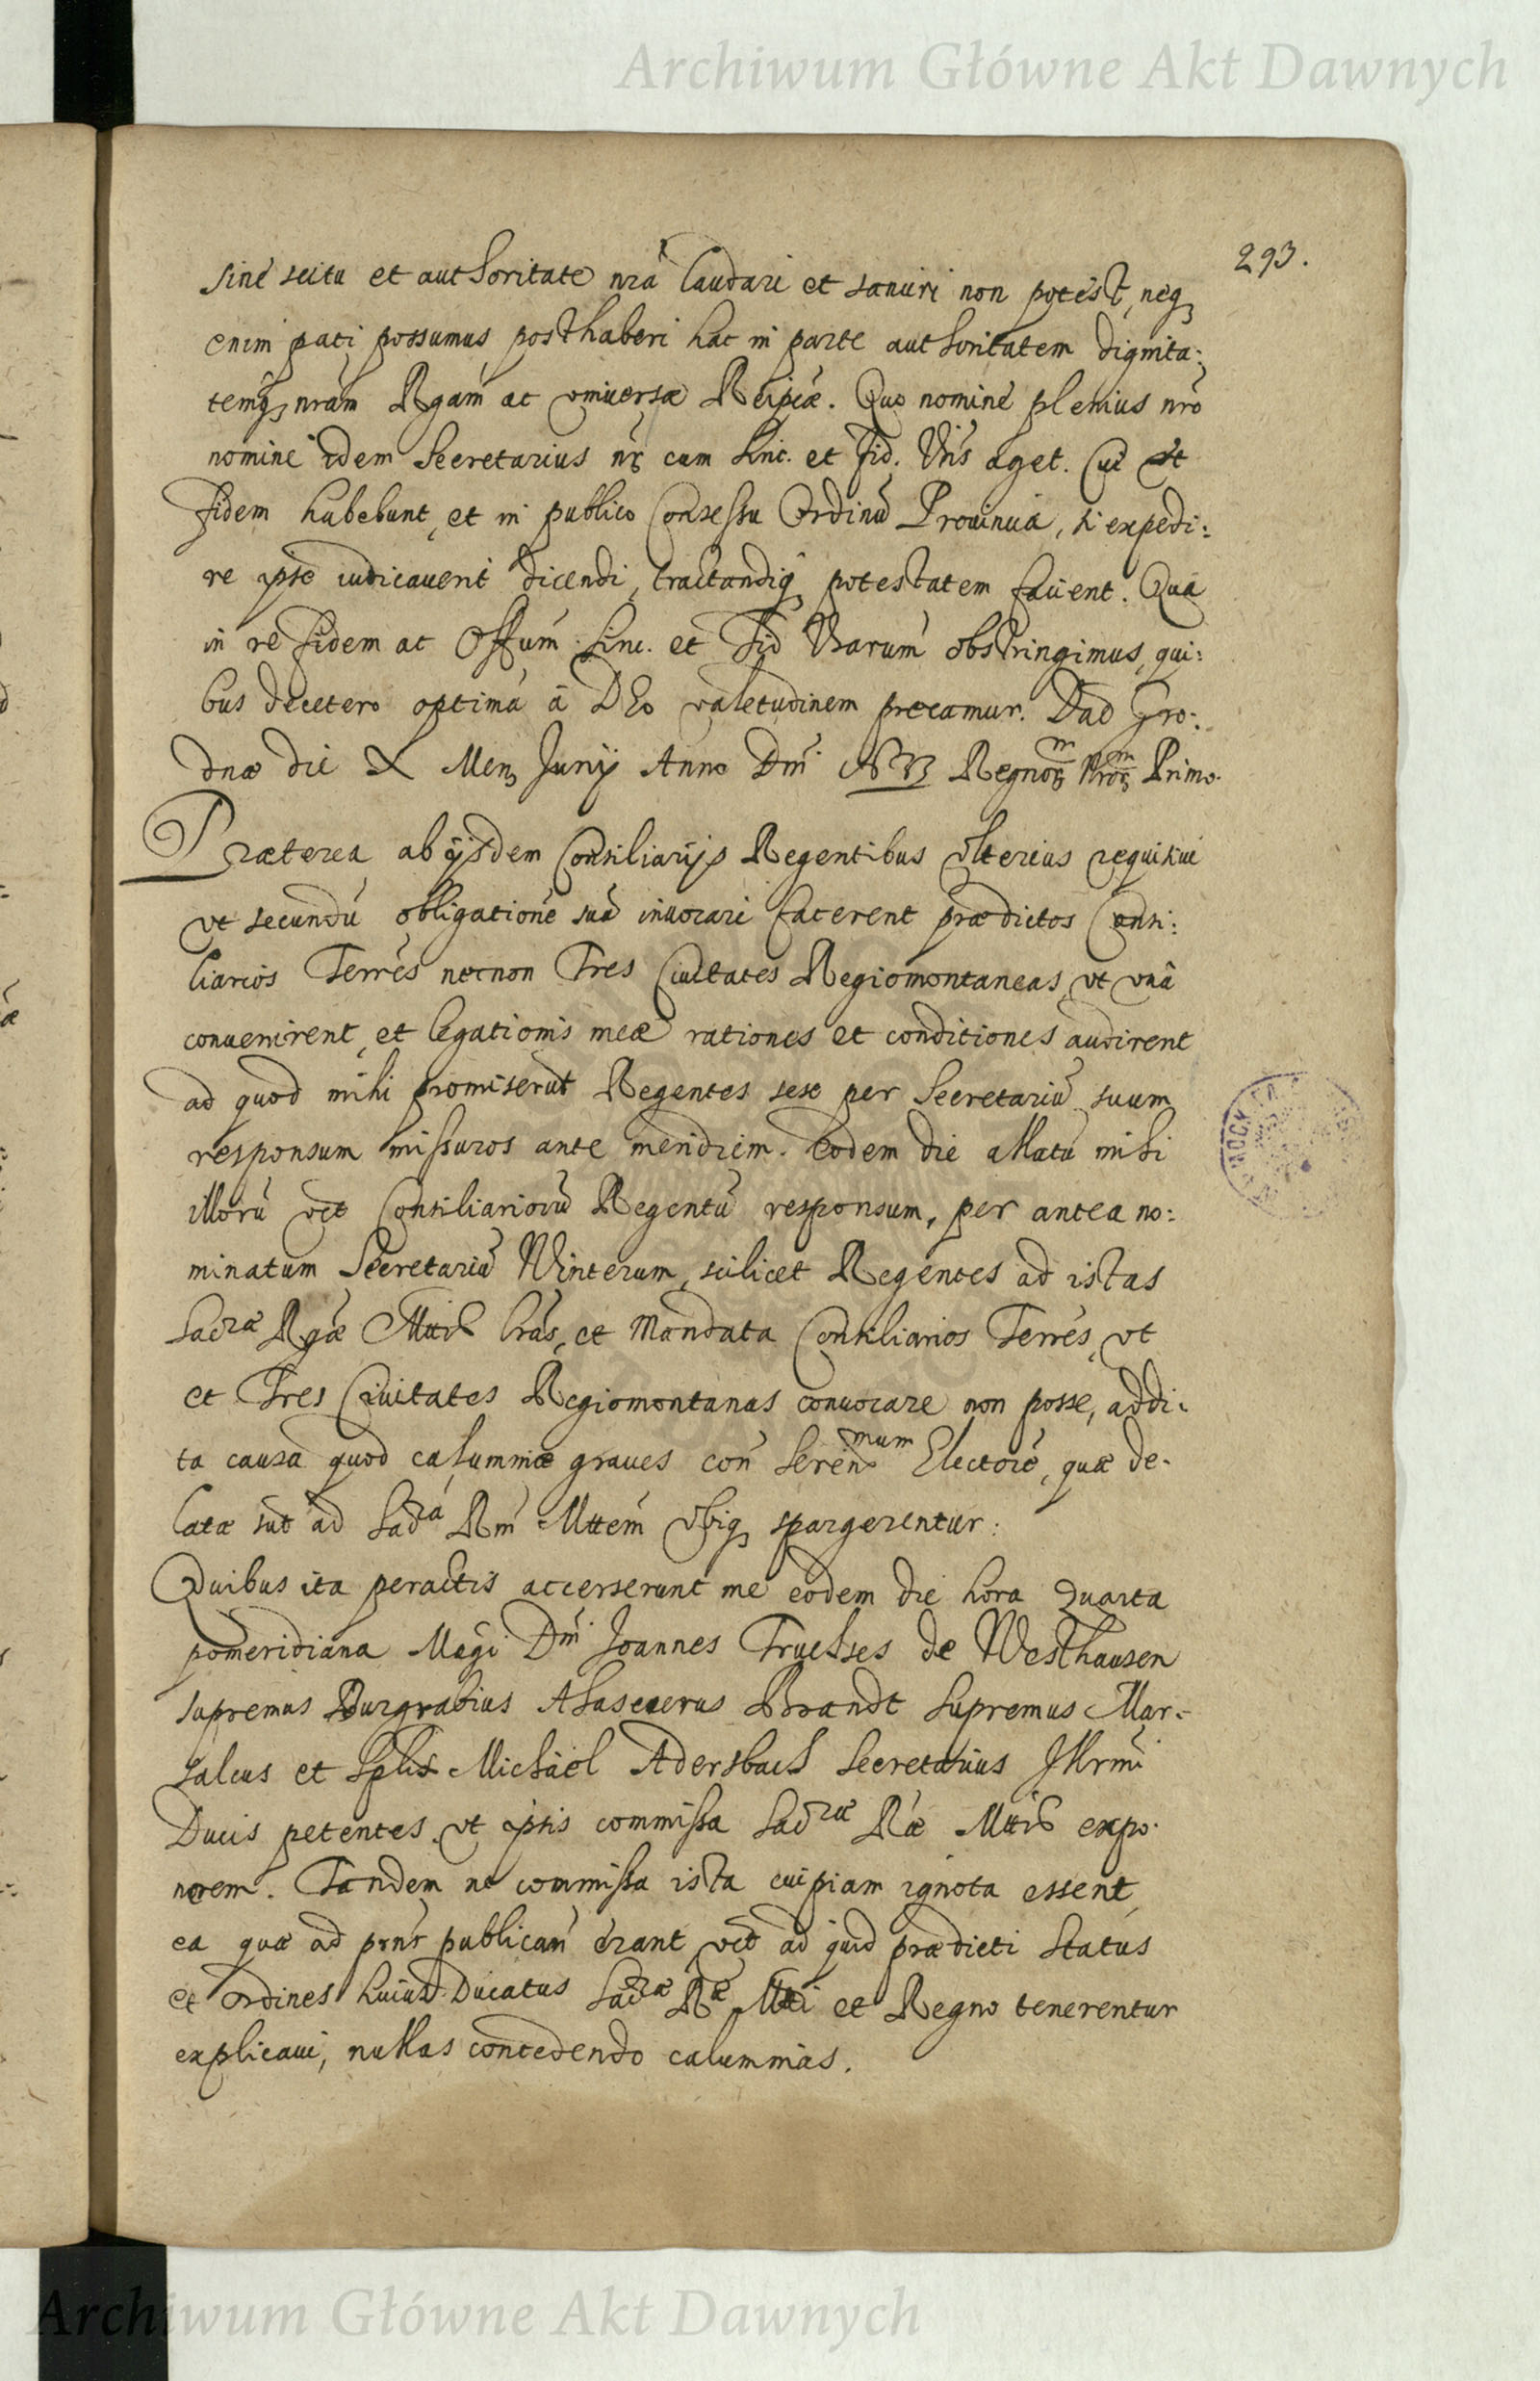 Archiwum Główne Akt Dawnych
293.
sine scitu et authoritate nrâ laudari et sanciri non potest, neq,
enim pati possumus posthaberi hac in parte authoritatem dignita:
temq, nram Rgam ac vniuersæ Reipcæ. Quo nomine plenius nro
nomine idem Secretarius nr cum Sinc. et Fid. Vris aget. Cui et
fidem habebunt, et in publico Consessu Ordinū Prouincia, si expedi:
re ipse iudicauerit dicendi, tractandiq, potestatem facient. Qua
in re fidem ac Offum Sinc. et Fid Vrarum obstringimus, qui:
bus decetero optimā â DEo valetudinem precamur. Dad Gro:
dnæ die X Mens Junij Anno Dni Regnor Nror Primo.
Præterea ab ijsdem Consiliarijs Regentibus vlterius requisiui
vt secundū obligationē suā inuocari facerent prædictos Consi:
liarios Terres necnon Tres Ciuitates Regiomontaneas, vt vnâ
conuenirent, et legationis meæ rationes et conditiones audirent
ad quod mihi promiserūt Regentes sese per Secretariū suum
responsum missuros ante meridiem. Eodem die allatū mihi
illorū vct Consiliariorū Regentū responsum, per antea no:
minatum Secretariū Winterum, scilicet Regentes ad istas
Sacræ Rgæ Mttis lrās, et Mandata Consiliarios Terres, vt
et Tres Ciuitates Regiomontanas conuocare non posse, addi:
ta causa quod calumniæ graues con Serenmum Electorē, quæ de-
latæ sūt ad Sacrā Rm Mttem vbiq, spargerentur:
Quibus ita peractis accerserunt me eodem die hora quarta
pomeridiana Magi Dni Joannes Truchses de Westhausen
supremus Burgrabius Ahasuerus Brandt Supremus Mar-
salcus et Splis Michael Adersbach Secretarius Jllrmi
Ducis petentes vt ipsis commissa Sacræ Ræ Mttis expo-
nerem. Tandem ne commissa ista cuipiam ignota essent,
ea quæ ad prns publicam erant vct ad quid prædicti Status
et Ordines huius Ducatus Sacræ Ræ Mtti et Regno tenerentur
explicaui, nullas concedendo calumnias.
Archiwum Główne Akt Dawnych